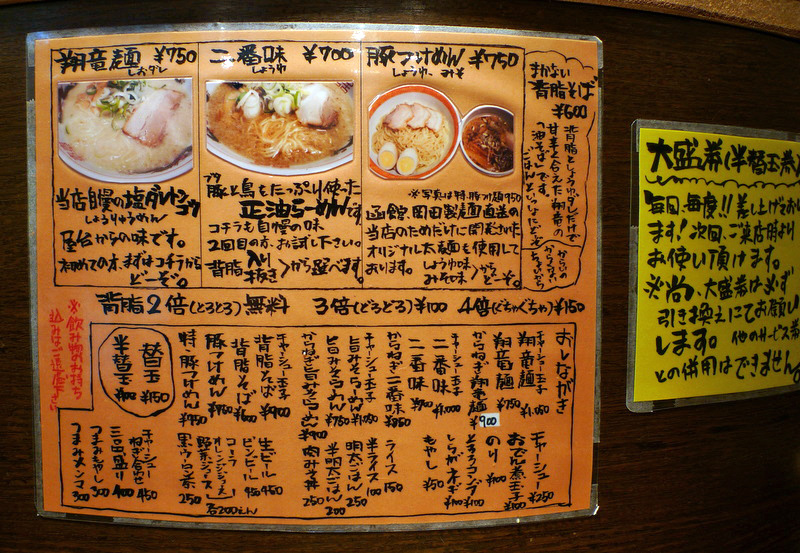 翔竜麺 ¥750
しおダレ
当店自慢の塩ダレトンコツ
しょうりゅうめん
屋台からの味です。
初めての方、まずはコチラから
どーぞ。
二番味 ¥700
しょうゆ
ブタ
豚と鳥をたっぷり使った
正油らーめんです
コチラも自慢の味
2回目の方、お試し下さい。
背脂 入り 抜き から選べます。
豚つけめん ¥750
しょうゆ みそ
※写真は特・豚つけ麺950
函館、岡田製麺直送の
当店のためだけに開発された
オリジナル太麺を使用して
おります。 しょうゆ味 みそ味 から
どーぞ。
まかない
背脂そば
¥600
背脂としょうゆダレだけで
甘辛く合えた翔竜の
「油そば」です。
背脂2倍(とろとろ)無料 3倍(どろどろ)¥100 4倍(ぐちゃぐちゃ)¥150
※飲み物のお持ち
込みはご遠慮下さい
おしながき
チャーシュー玉子
翔竜麺 ¥1,050
翔竜麺 ¥750
からねぎ翔竜麺 ¥900
チャーシュー玉子
二番味 ¥1,000
二番味 ¥700
からねぎ二番味 ¥850
チャーシュー玉子
旨みそらーめん ¥1,050
旨みそらーめん ¥750
からねぎ旨みそらーめん ¥900
チャーシュー玉子
背脂そば ¥900
背脂そば ¥600
豚つけめん ¥750
特・豚つけめん ¥950
替玉 ¥150
半替玉 ¥100
チャーシュー ¥250
おでん煮玉子 ¥100
のり ¥100
とろろコンブ ¥100
しらがネギ ¥100
もやし ¥50
ライス 150
半ライス 100
明太ごはん 250
半明太ごはん 200
肉みそ丼 250
生ビール 450
ビンビール 450
コーラ
オレンジジュース
野菜ジュース
各200えん
黒ウーロン茶 250
チャーシュー
ねぎ合わせ 450
三品盛り 400
つまみもやし 300
つまみメンマ 300
大盛券(半替玉券)
毎回、毎度!!差し上げており
ます!次回、ご来店時より
お使い頂けます。
※尚、大盛券は必ず
引き換えにてお願い
します。 他のサービス券
との併用はできません。